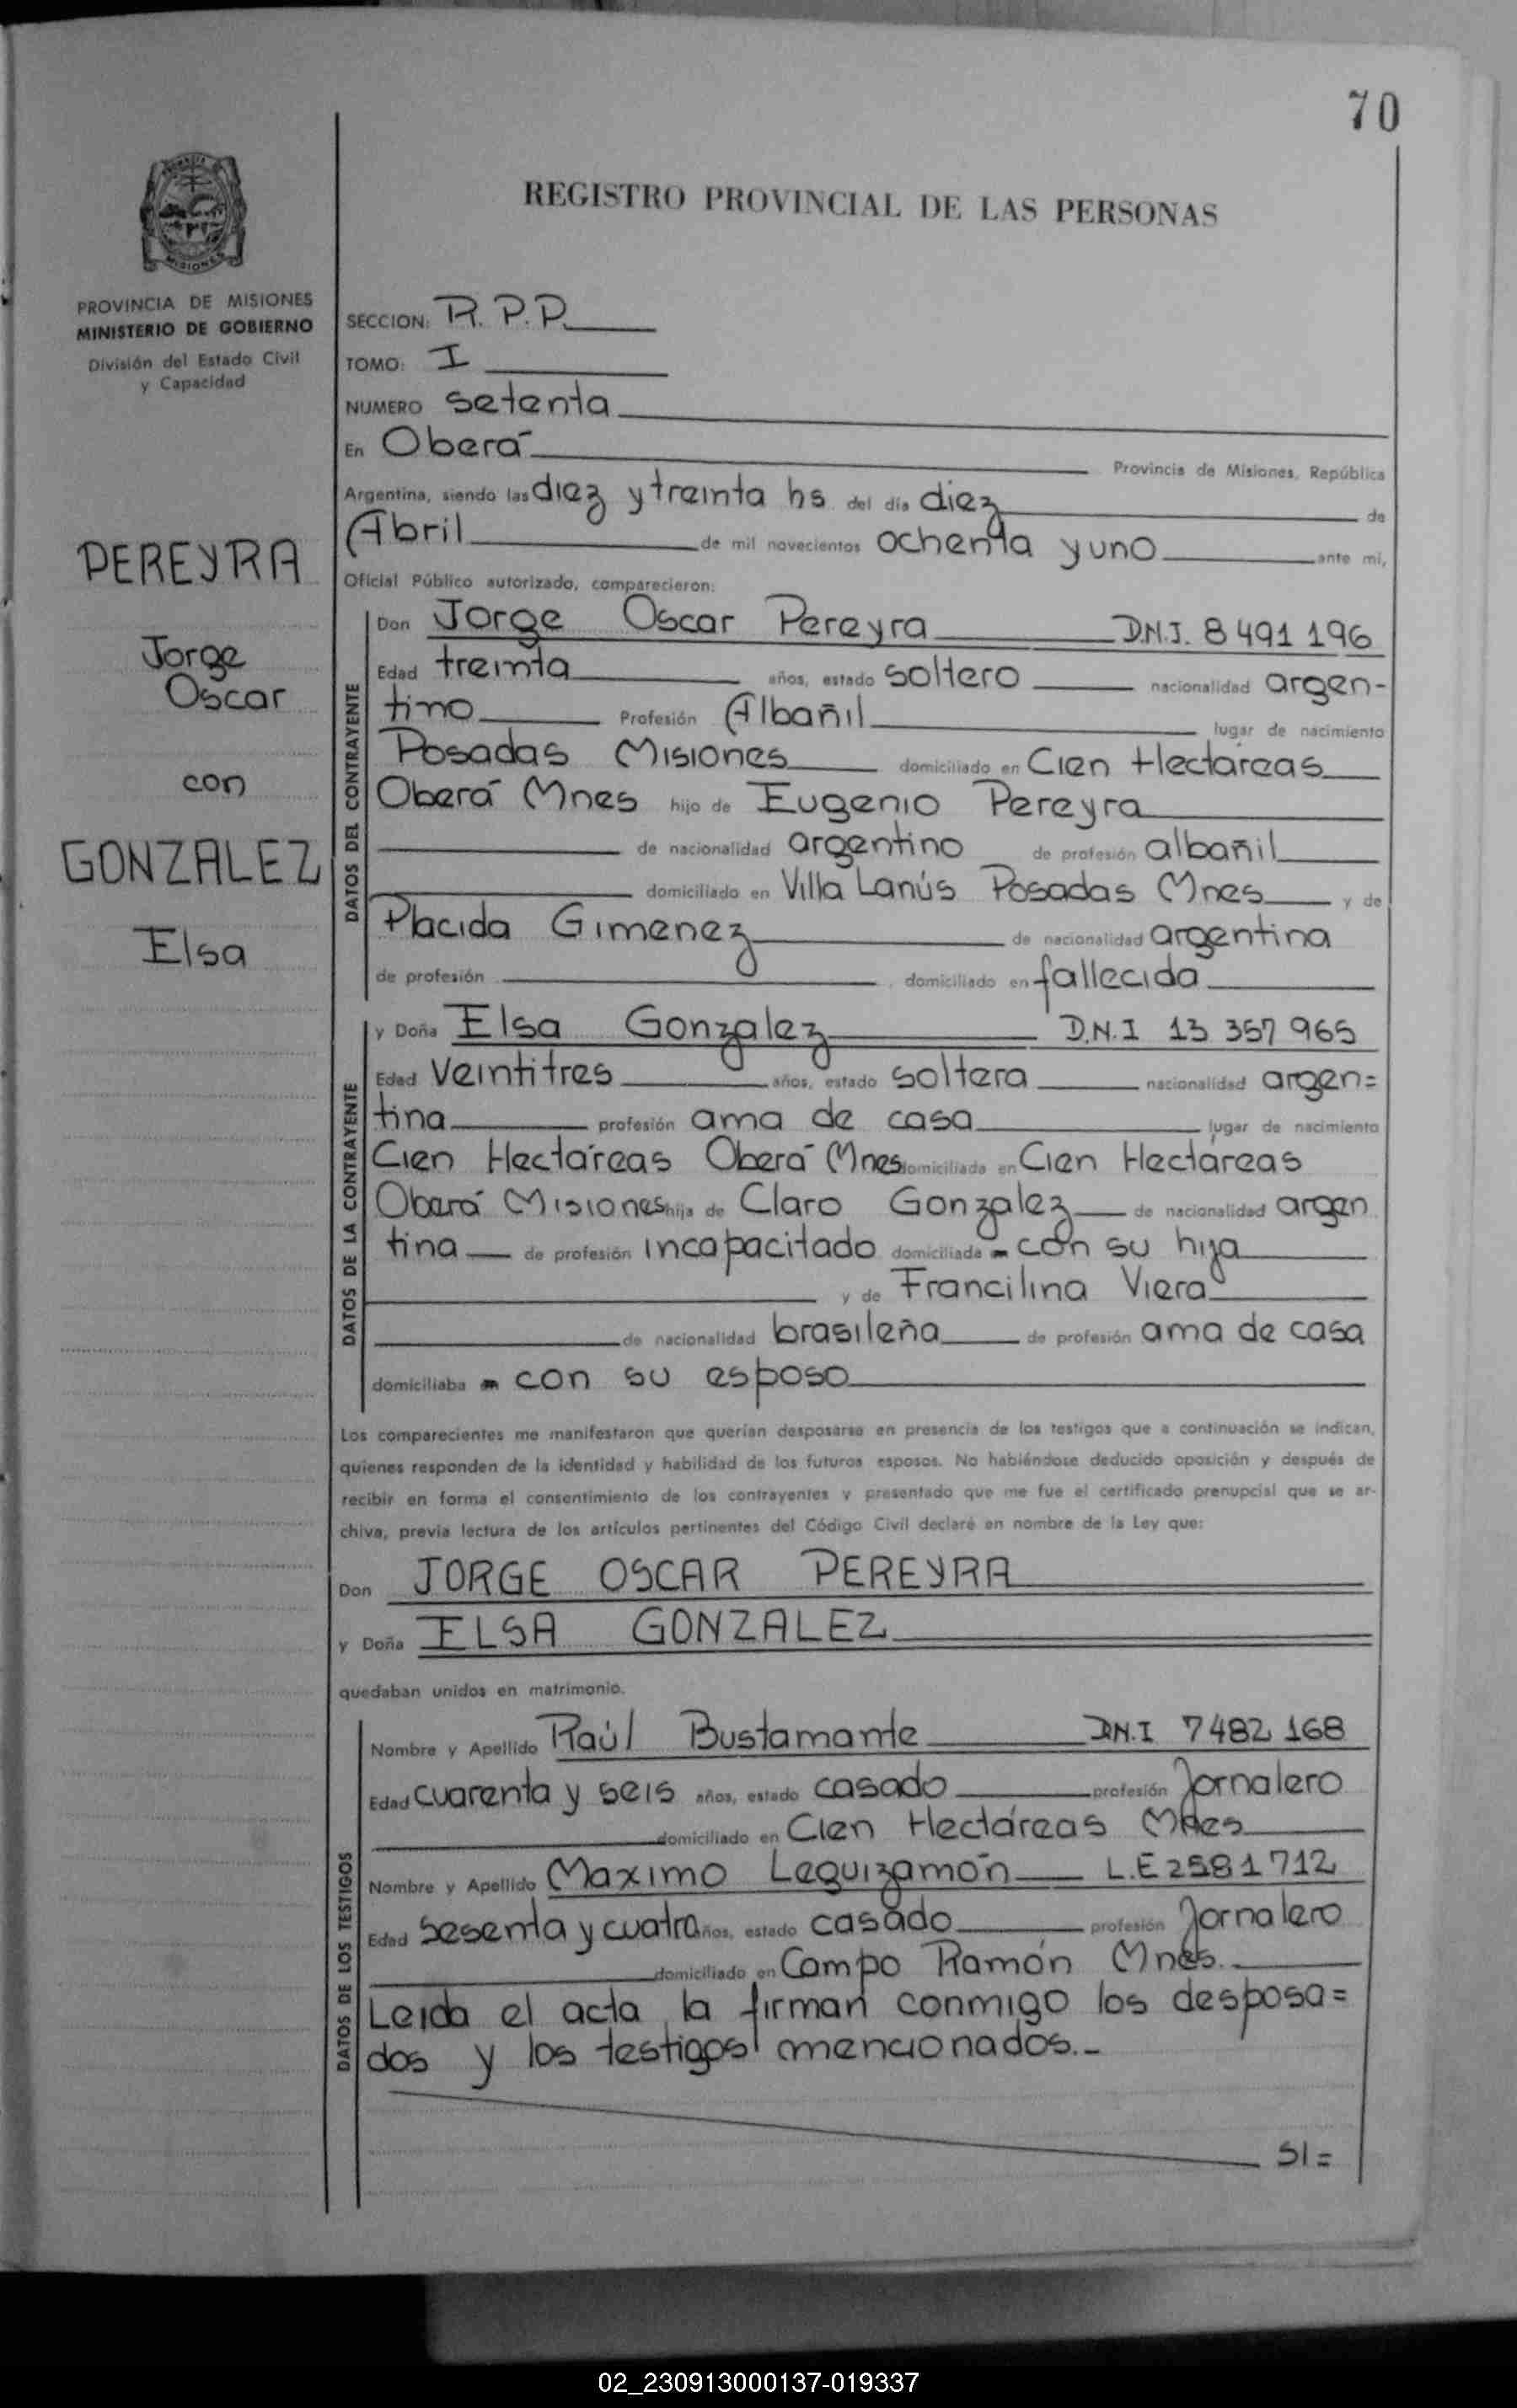 70
REGISTRO PROVINCIAL DE LAS PERSONAS
MISIONES
PROVINCIA DE MISIONES
MINISTERIO DE GOBIERNO
División del Estado Civil
y Capacidad
PEREYRA
Jorge
Oscar
con
GONZALEZ
Elsa
SECCION: R.P.P.
TOMO: I
NUMERO setenta
En Oberá Provincia de Misiones, República
Argentina, siendo las diez y treinta hs del día diez de
Abril de mil novecientos ochenta y uno ante mi,
Oficial Público autorizado, comparecieron:
DATOS DEL CONTRAYENTE
Don Jorge Oscar Pereyra D.N.I. 8 491 196
Edad treinta años, estado soltero nacionalidad argen-
tino Profesión Albañil lugar de nacimiento
Posadas Misiones domiciliado en Cien Hectareas
Oberá Mnes hijo de Eugenio Pereyra
de nacionalidad argentino de profesión albañil
domiciliado en Villa Lanús Posadas Mnes y de
Placida Gimenez de nacionalidad argentina
de profesión domiciliado en fallecida
DATOS DE LA CONTRAYENTE
y Doña Elsa Gonzalez D.N.I 13 357 965
Edad Veintitres años, estado soltera nacionalidad argen=
tina profesión ama de casa lugar de nacimiento
Cien Hectáreas Oberá Mnes domiciliada en Cien Hectareas
Oberá Misiones hija de Claro Gonzalez de nacionalidad argen
tina de profesión incapacitado domiciliada con su hija
y de Francilina Viera
de nacionalidad brasileña de profesión ama de casa
domiciliaba con su esposo
Los comparecientes me manifestaron que querían desposarse en presencia de los testigos que a continuación se indican,
quienes responden de la identidad y habilidad de los futuros esposos. No habiéndose deducido oposición y después de
recibir en forma el consentimiento de los contrayentes y presentado que me fue el certificado prenupcial que se ar-
chiva, previa lectura de los artículos pertinentes del Código Civil declaré en nombre de la Ley que:
Don JORGE OSCAR PEREYRA
y Doña ELSA GONZALEZ
quedaban unidos en matrimonio.
DATOS DE LOS TESTIGOS
Nombre y Apellido Raúl Bustamante D.N.I 7482 168
Edad cuarenta y seis años, estado casado profesión Jornalero
domiciliado en Cien Hectáreas Mnes
Nombre y Apellido Maximo Leguizamón L.E 2581712
Edad Sesenta y cuatro años, estado casado profesión Jornalero
domiciliado en Campo Ramón Mnes.
Leida el acta, la firman conmigo los desposa=
dos y los testigos mencionados.-
SI=
02_230913000137-019337